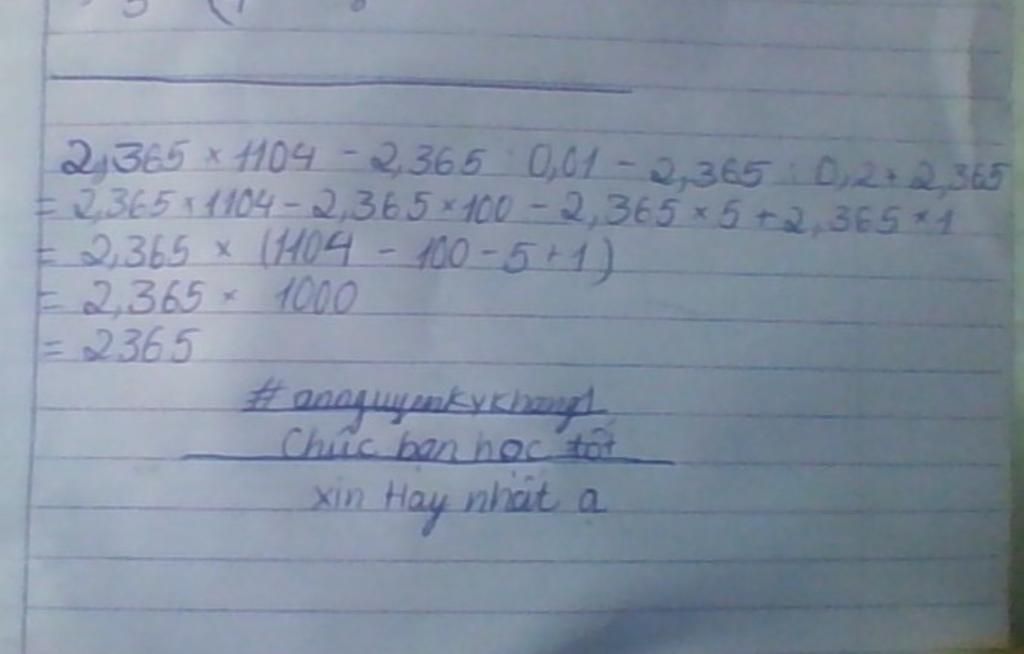 2,365 × 1104 - 2,365 : 0,01 - 2,365 : 0,2 + 2,365
= 2,365 × 1104 - 2,365 × 100 - 2,365 × 5 + 2,365 × 1
= 2,365 × (1104 - 100 - 5 + 1)
= 2,365 × 1000
= 2365
Chúc bạn học tốt
xin Hay nhất ạ